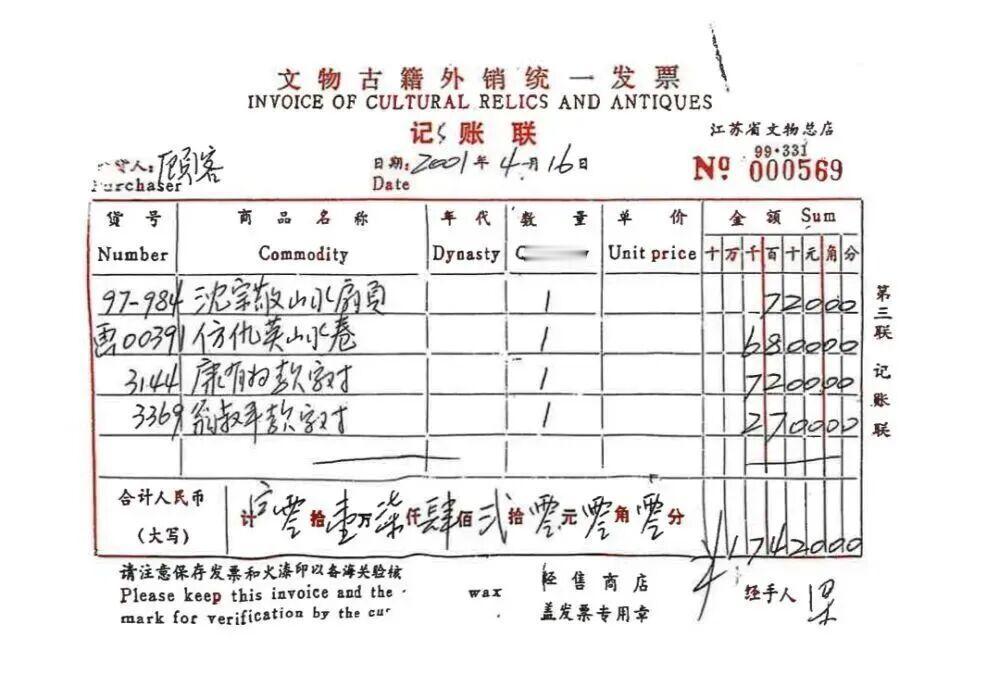 文物古籍外销统一发票
INVOICE OF CULTURAL RELICS AND ANTIQUES
记账联
江苏省文物总店
人: 顾客
日期: 2001年4月16日
99·331
Purchaser
Date
Nº 000569
货号 商品名称 年代 数量 单价 金额 Sum
Number Commodity Dynasty Unit price 十万千百十元角分
97-984 沈宗敬山水扇页 1 72000
画00391 仿仇英山水卷 1 680000
3144 康有为款字对 1 720000
3369 翁叔平款字对 1 270000
合计人民币 计零拾壹万柒仟肆佰贰拾零元零角零分
(大写) ¥1742000
第三联 记账联
请注意保存发票和火漆印以备海关验核
Please keep this invoice and the wax
mark for verification by the
经售商店
盖发票专用章
经手人